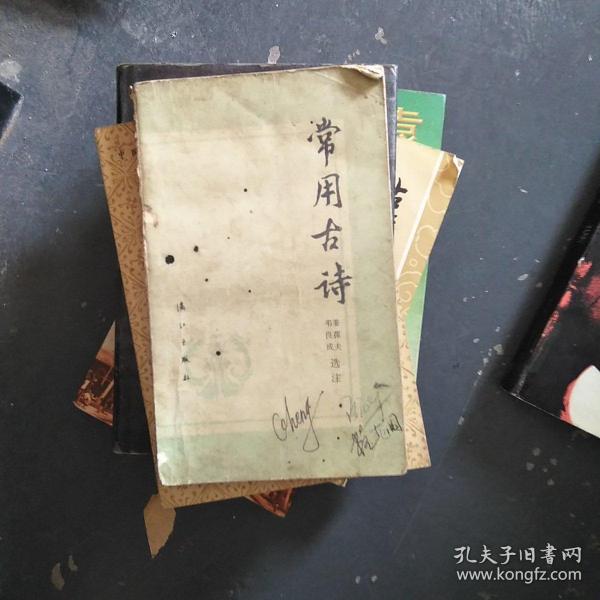 常用古诗
韦良成
姜葆夫
选注
漓江出版社
Cheng
孔夫子旧书网
www.kongfz.com